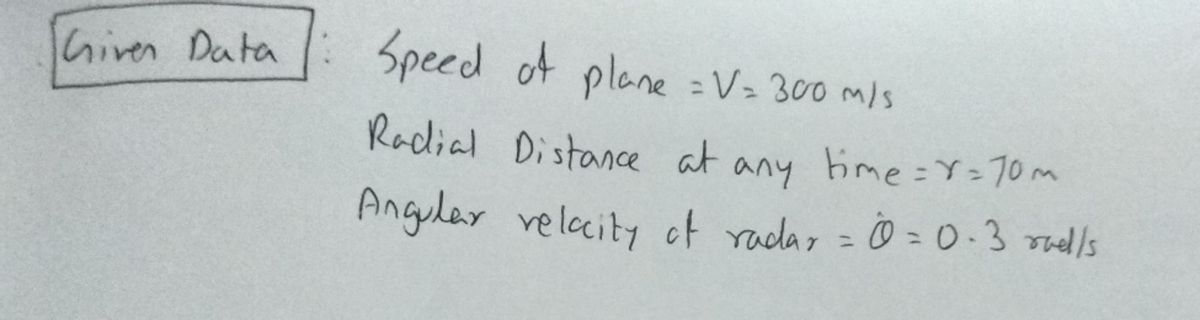 Given Data : Speed of plane = V = 300 m/s
Radial Distance at any time = r = 70 m
Angular velocity of radar = θ̇ = 0.3 rad/s